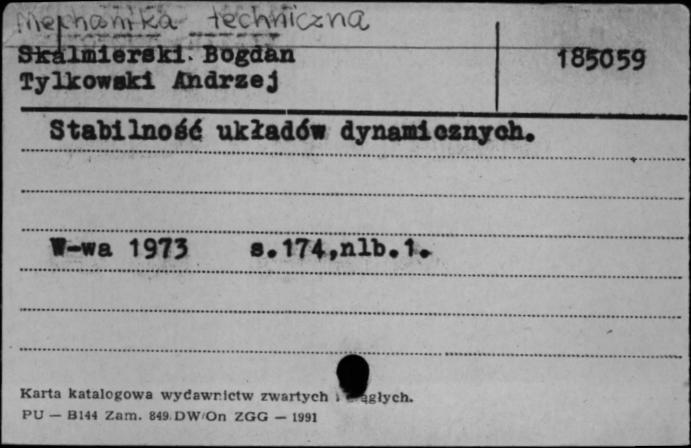 Mechanika techniczna
Skalmierski Bogdan
185059
Tylkowski Andrzej
Stabilność układów dynamicznych.
W-wa 1973 s.174,nlb.1.
Karta katalogowa wydawnictw zwartych i ciągłych.
PU — B144 Zam. 849 DW/On ZGG — 1991